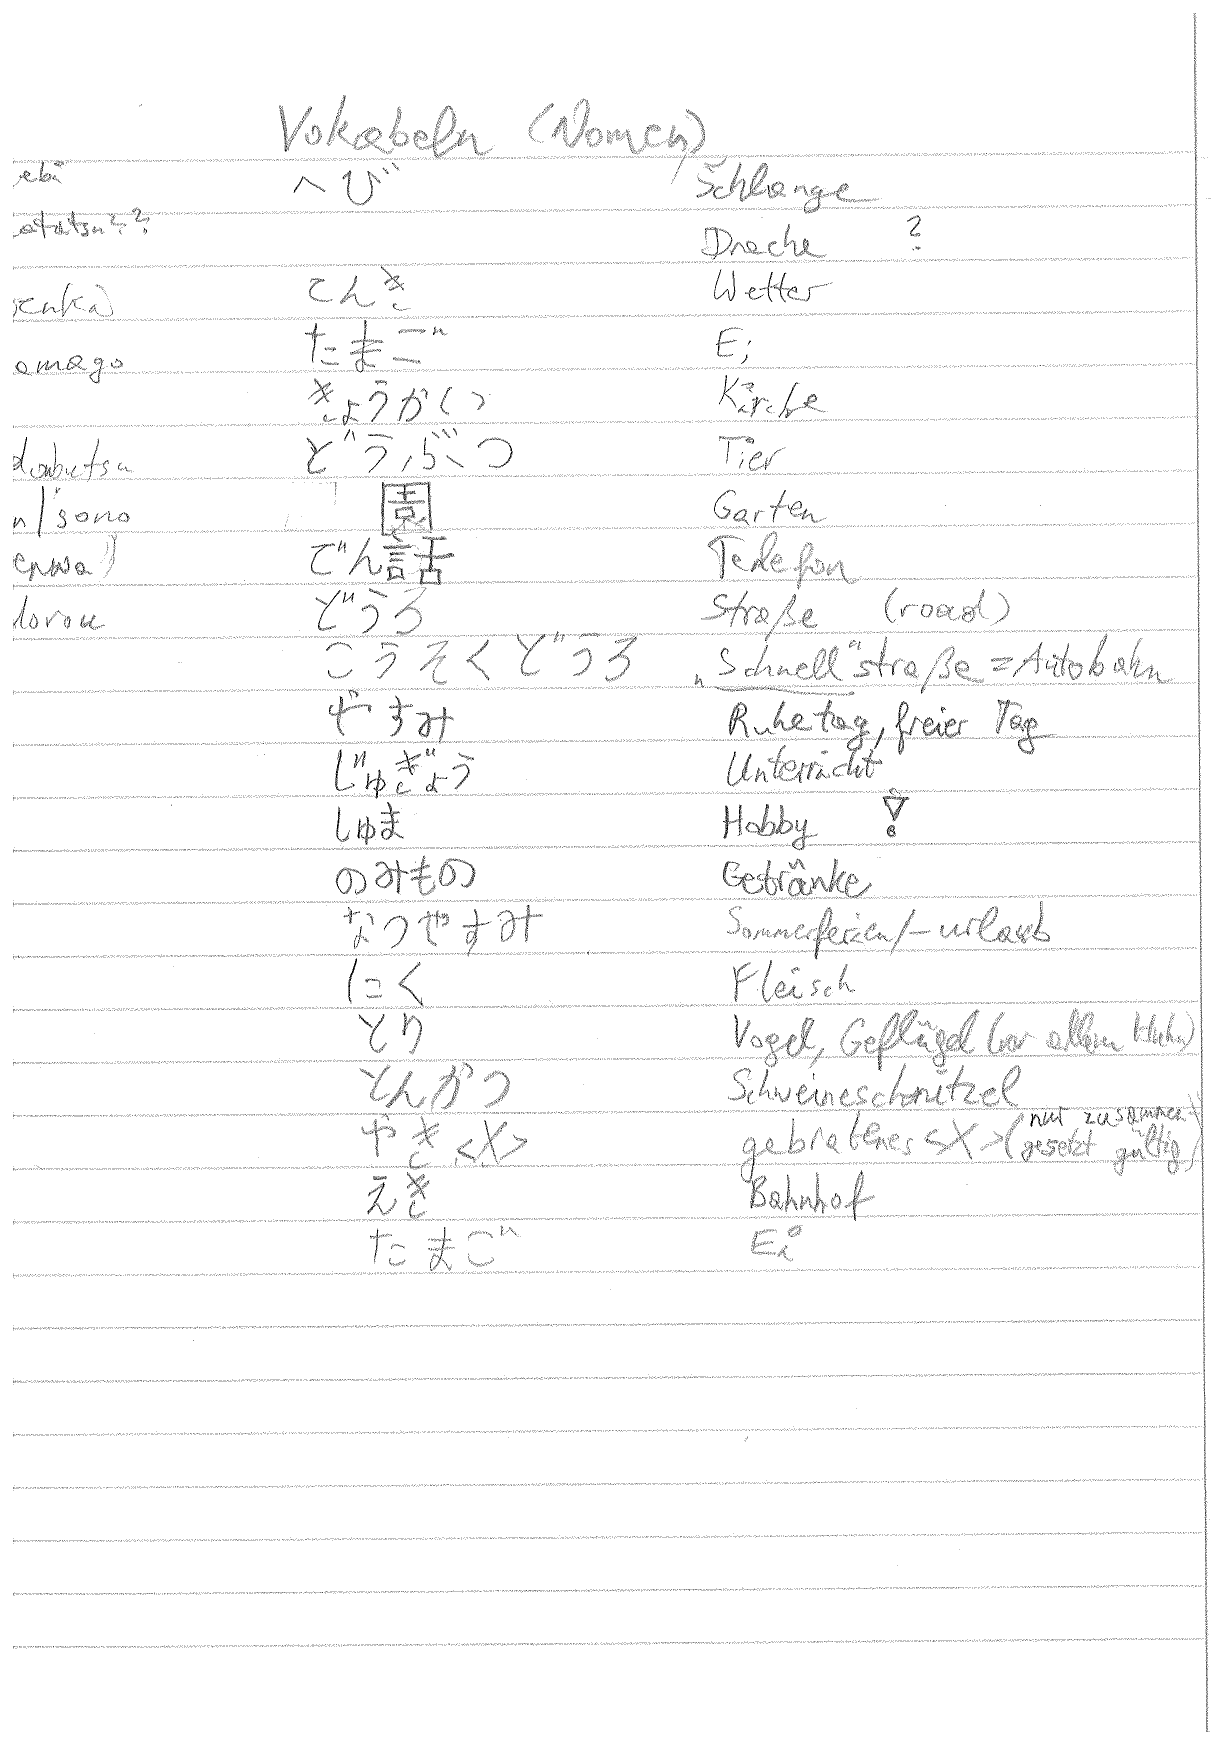 Vokabeln (Nomen)
ebi へび Schlange
atatsu?? Drache ?
てんき Wetter
amago たまご Ei
きょうかい Kirche
dobutsu どうぶつ Tier
n/sono 園 Garten
enwa) でん話 Telefon
dorou どうろ Straße (road)
こうそくどうろ „Schnell"straße = Autobahn
やすみ Ruhetag, freier Tag
じゅぎょう Unterricht
しゅま Hobby !
のみもの Getränke
なつやすみ Sommerferien/-urlaub
にく Fleisch
とり Vogel, Geflügel (vor allem Huhn)
とんかつ Schweineschnitzel
やき <X> gebratenes <X> (nur zusammengesetzt gültig)
えき Bahnhof
たまご Ei